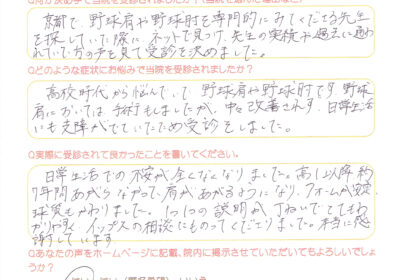 京都で、野球肩や野球肘を専門的にみてくださる先生
を探していた際に、ネットで見つけ、先生の実績や過去に通わ
れていた方の声を見て受診を決めました。
Qどのような症状にお悩みで当院を受診されましたか?
高校時代から悩んでいて 野球肩や野球肘です 野球
肩においては、手術もしましたが、中々改善されず、日常生活
にも支障がでていたため受診をしました。
Q実際に受診されて良かったことを書いてください。
日常生活での不安が全くなくなりました。高1以降約
7年間あがらなかった肩があがるようになり、フォームが安定、
球質もかわりました。1つ1つの説明が丁ねいでとてもわ
かりやすく、イップスの相談にものってくださりました。本当に感
謝しています
Qあなたの声をホームページに記載、院内に掲示させていただいてもよろしいでしょ
うか?